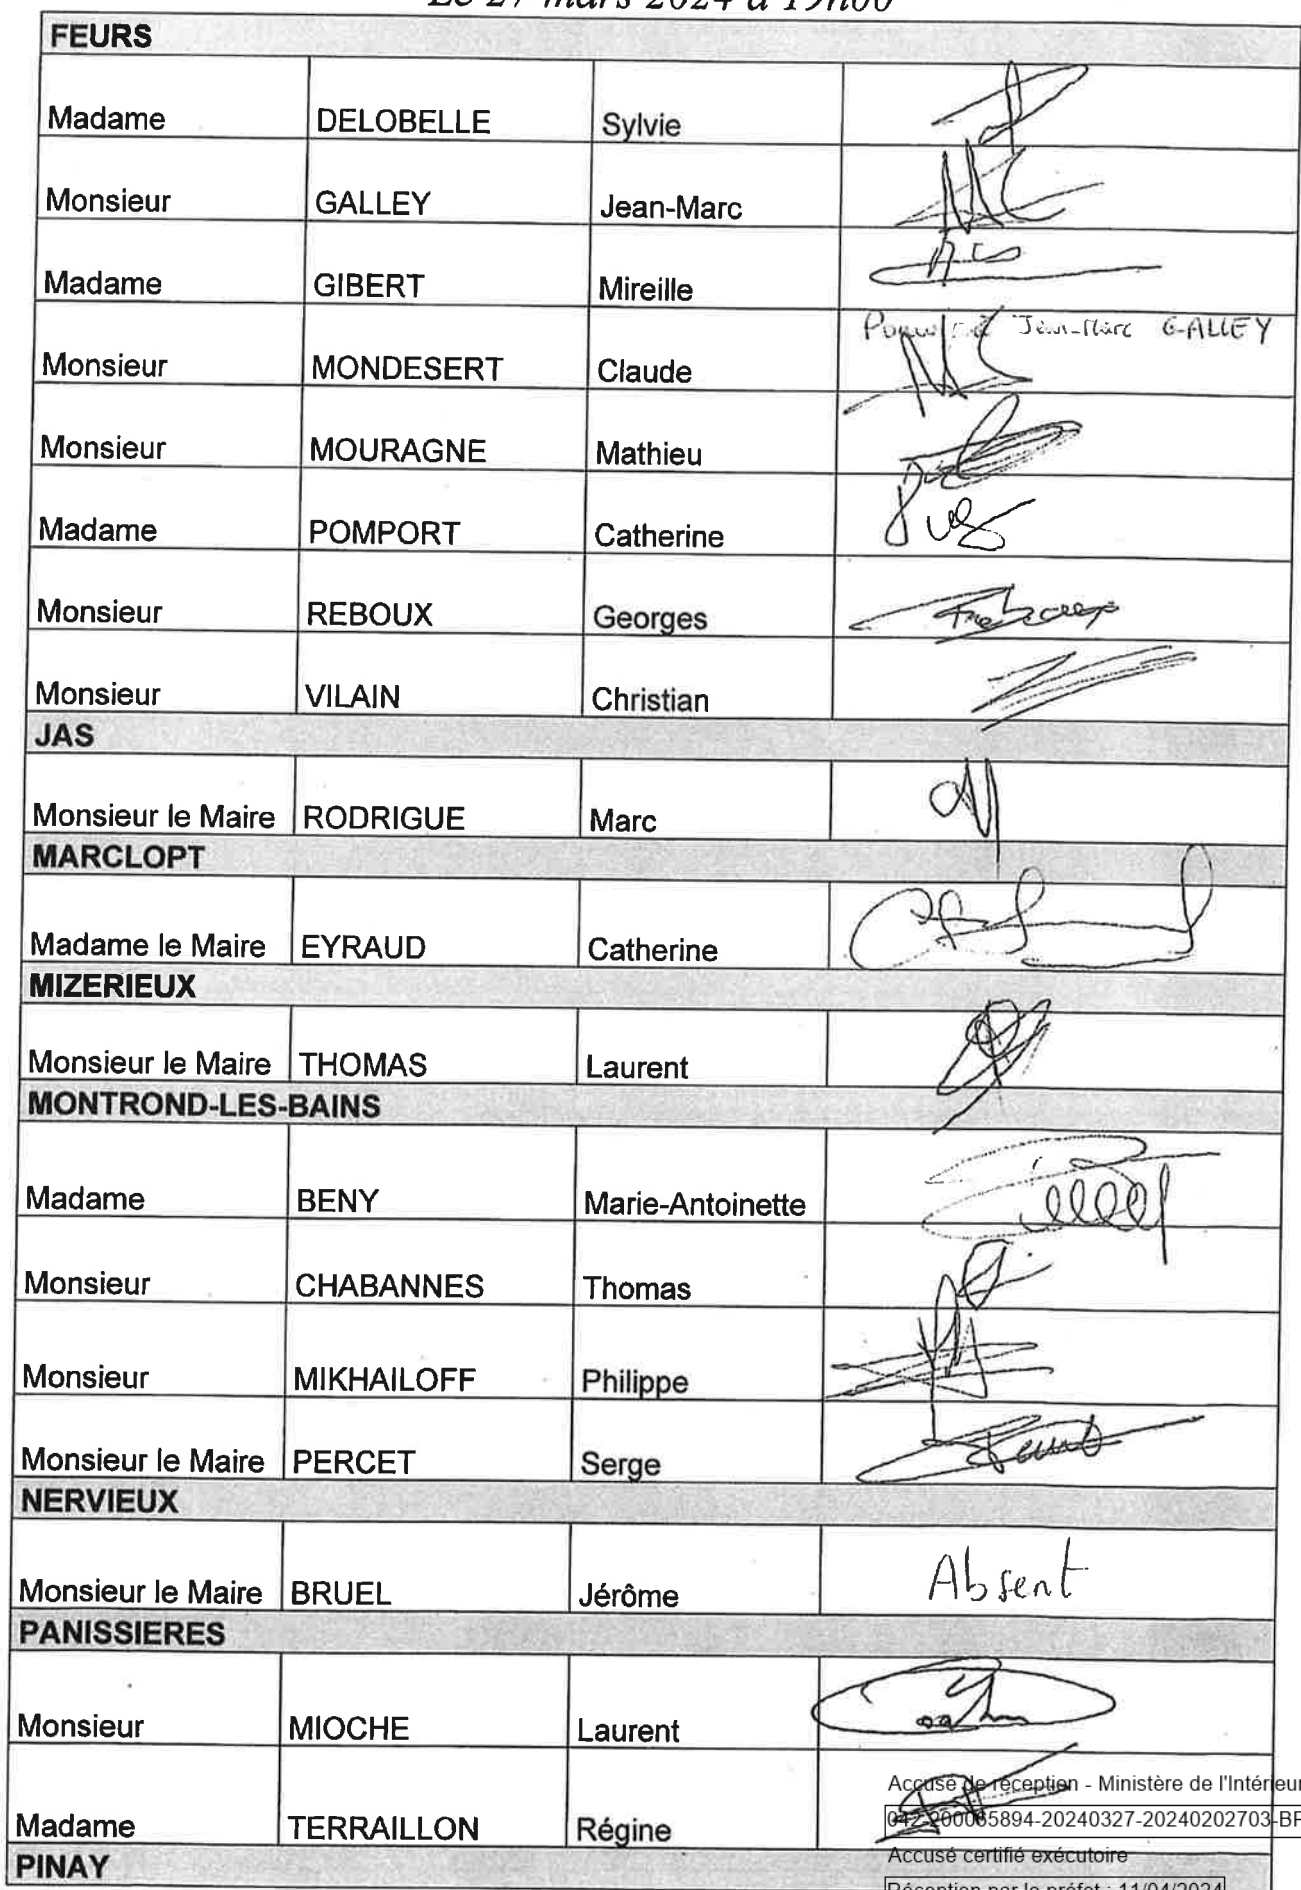 Le 27 mars 2024 à 19h00
FEURS
Madame DELOBELLE Sylvie
Monsieur GALLEY Jean-Marc
Madame GIBERT Mireille
Jean-Marc GALLEY
Monsieur MONDESERT Claude
Monsieur MOURAGNE Mathieu
Madame POMPORT Catherine
Monsieur REBOUX Georges
Monsieur VILAIN Christian
JAS
Monsieur le Maire RODRIGUE Marc
MARCLOPT
Madame le Maire EYRAUD Catherine
MIZERIEUX
Monsieur le Maire THOMAS Laurent
MONTROND-LES-BAINS
Madame BENY Marie-Antoinette
Monsieur CHABANNES Thomas
Monsieur MIKHAILOFF Philippe
Monsieur le Maire PERCET Serge
NERVIEUX
Monsieur le Maire BRUEL Jérôme Absent
PANISSIERES
Monsieur MIOCHE Laurent
Accusé de réception - Ministère de l'Intérieur
042-200065894-20240327-20240202703-BF
Madame TERRAILLON Régine
Accusé certifié exécutoire
PINAY
Réception par le préfet : 11/04/2024